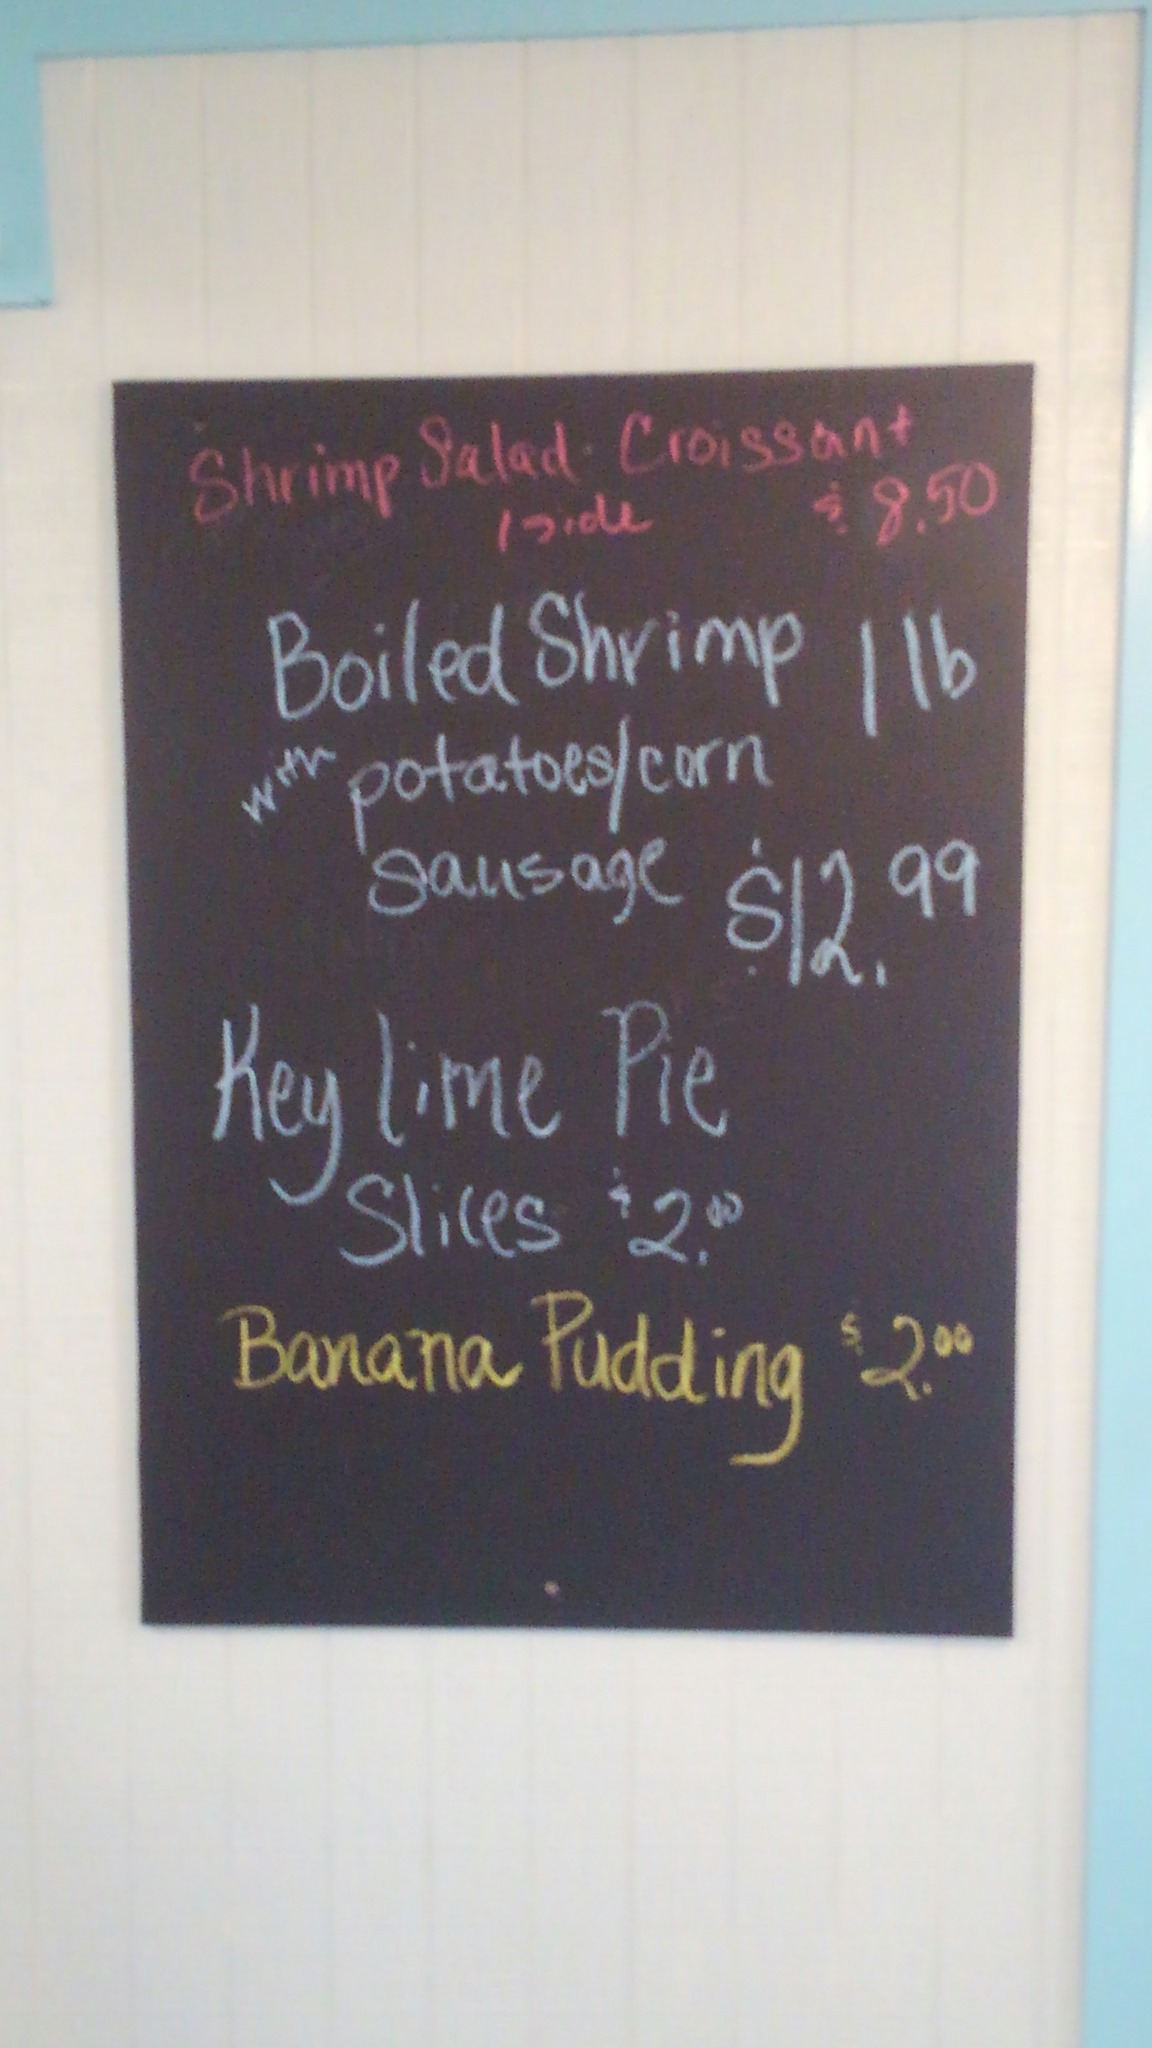 Shrimp Salad Croissant
1 side $8.50
Boiled Shrimp 1 lb
with potatoes/corn
sausage $12.99
Key lime Pie
Slices $2.00
Banana Pudding $2.00